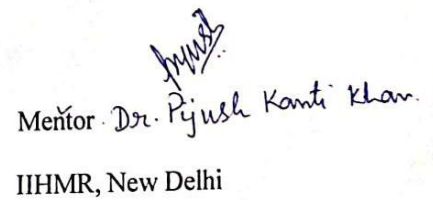 Piyush
Mentor Dr. Pijush Kanti Khan.
IIHMR, New Delhi